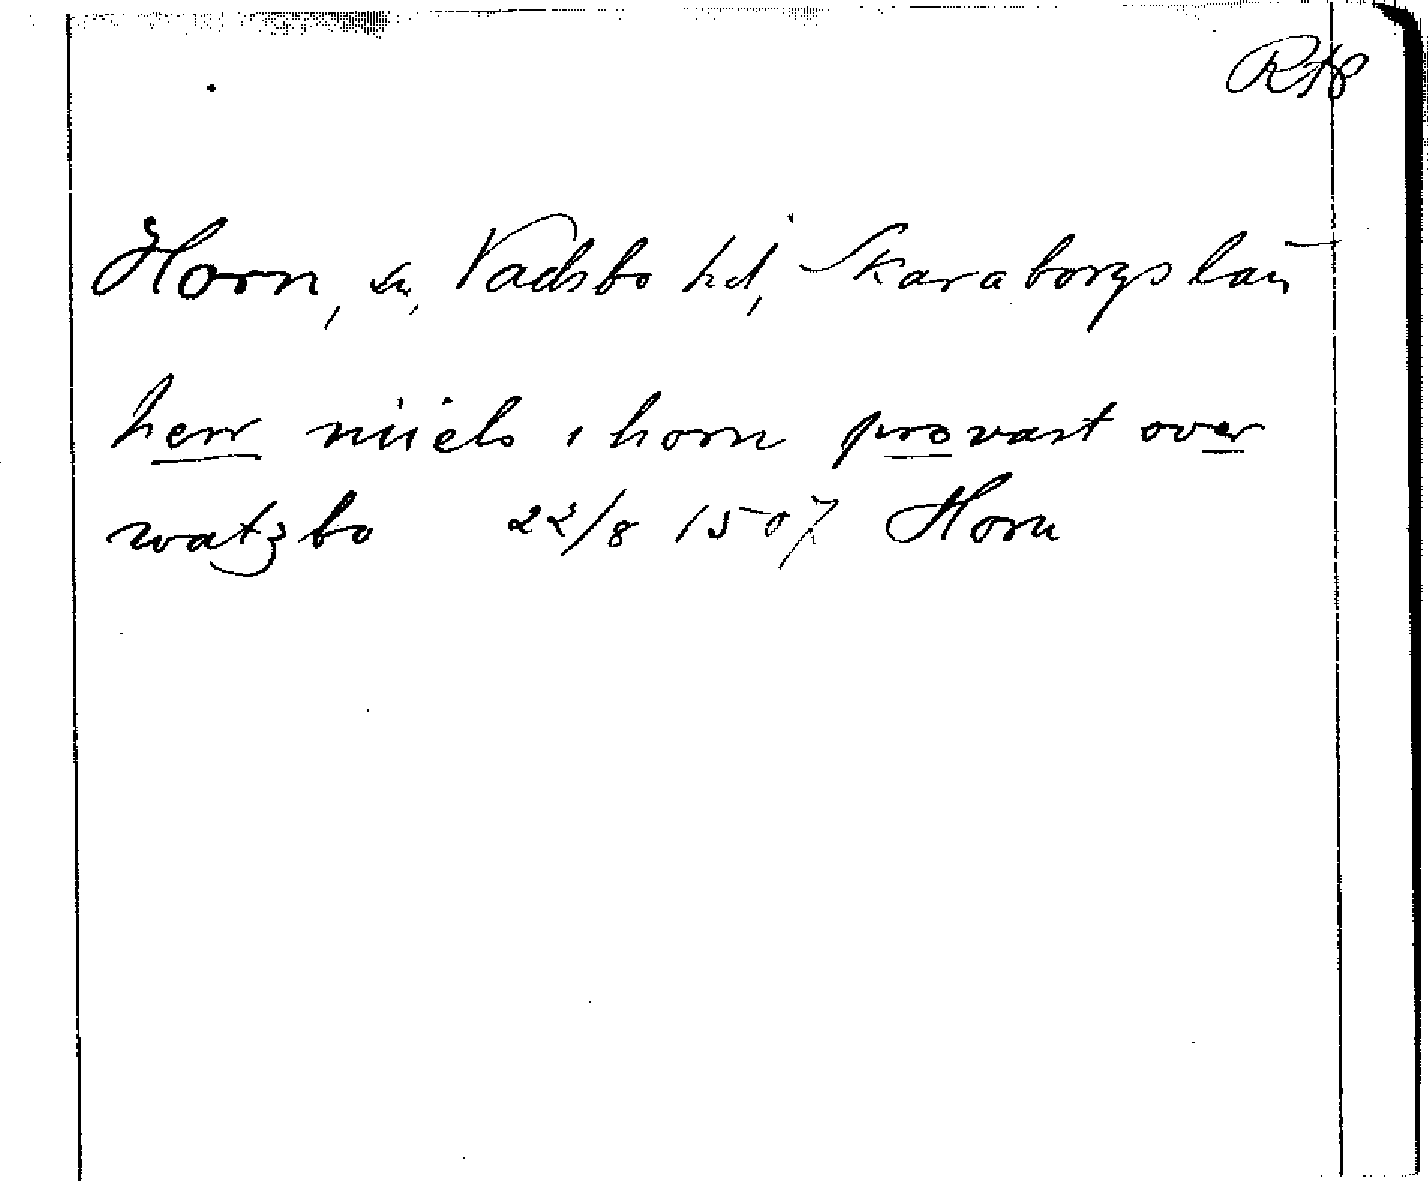 RAp
Horn, sn, Vadsbo hd, Skaraborgs län
herr niiels i horn provast over
watzbo 22/8 1507 Horn